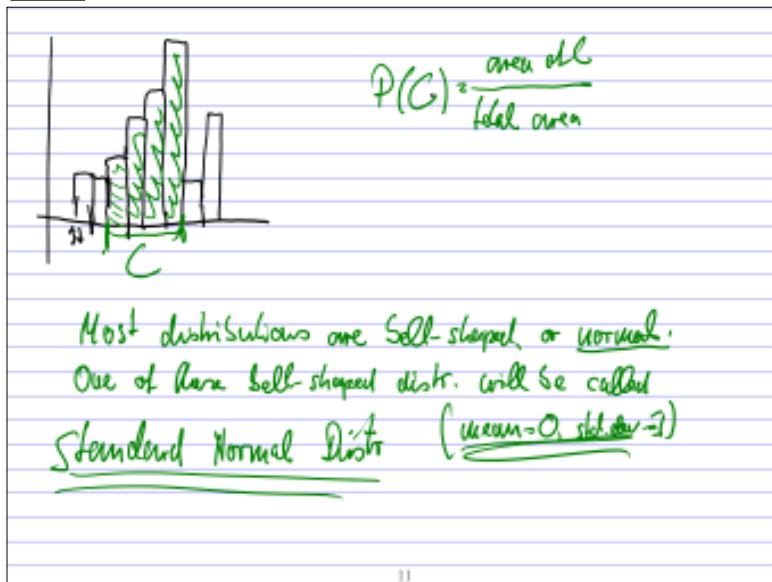 P(C) = area of C
total area
C
Most distributions are bell-shaped, or normal.
One of these bell-shaped distr. will be called
Standard Normal Distr (mean=0, std.dev=1)
11